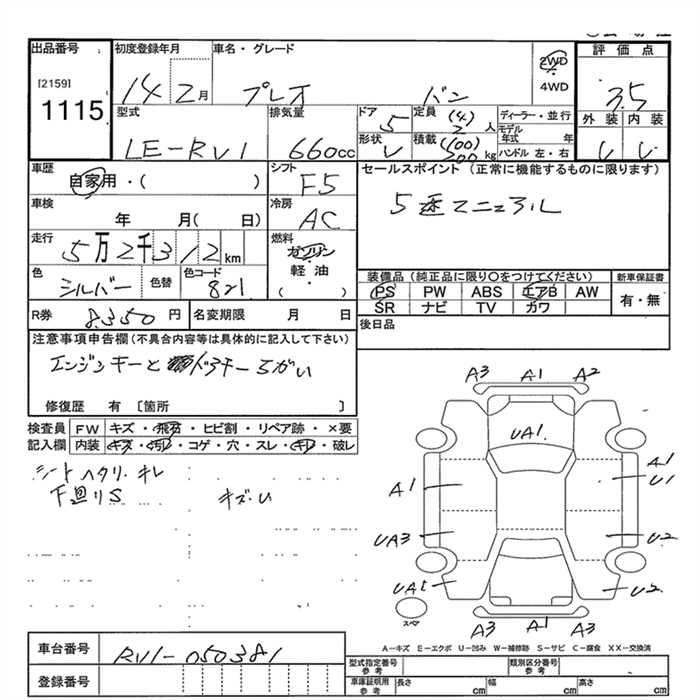 出品番号 初度登録年月 車名・グレード 評価点
[2159]
1115
14 2月 プレオ バン 2WD 4WD 3.5
型式 排気量 ドア 定員 (4) ディーラー・並行 外装 内装
LE-RV1 660cc 5 2人 モデル年式 年
形状 V 積載 (100) 200kg ハンドル 左・右 U U
車歴 シフト セールスポイント(正常に機能するものに限ります)
自家用・( ) F5
5速マニュアル
車検 年 月( 日) 冷房 AC
走行 5万2千312km 燃料 ガソリン 軽・油 ・( )
色 シルバー 色替 色コード 821
装備品(純正品に限り○をつけてください) 新車保証書
PS PW ABS エアB AW 有・無
SR ナビ TV カワ
R券 8.350円 名変期限 月 日 後日品
注意事項申告欄(不具合内容等は具体的に記入して下さい)
エンジンキーと ドアキーちがい
修復歴 有 〔箇所 〕
検査員 FW キズ・飛石・ヒビ割・リペア跡・×要
記入欄 内装 キズ・汚れ・コゲ・穴・スレ・キレ・破レ
シートヘタリ・キレ
下廻りS キズ・U
A3 A1 A2
UA1
A1 A1 U1
UA3 U2
UA1 U2
スペア
A3 A1 A3
A−キズ E−エクボ U−凹み W−補修跡 S−サビ C−腐食 XX−交換済
車台番号 RV1-050381
登録番号
型式指定番号 参考 類別区分番号 参考
車庫証明用 参考 長さ cm 幅 cm 高さ cm